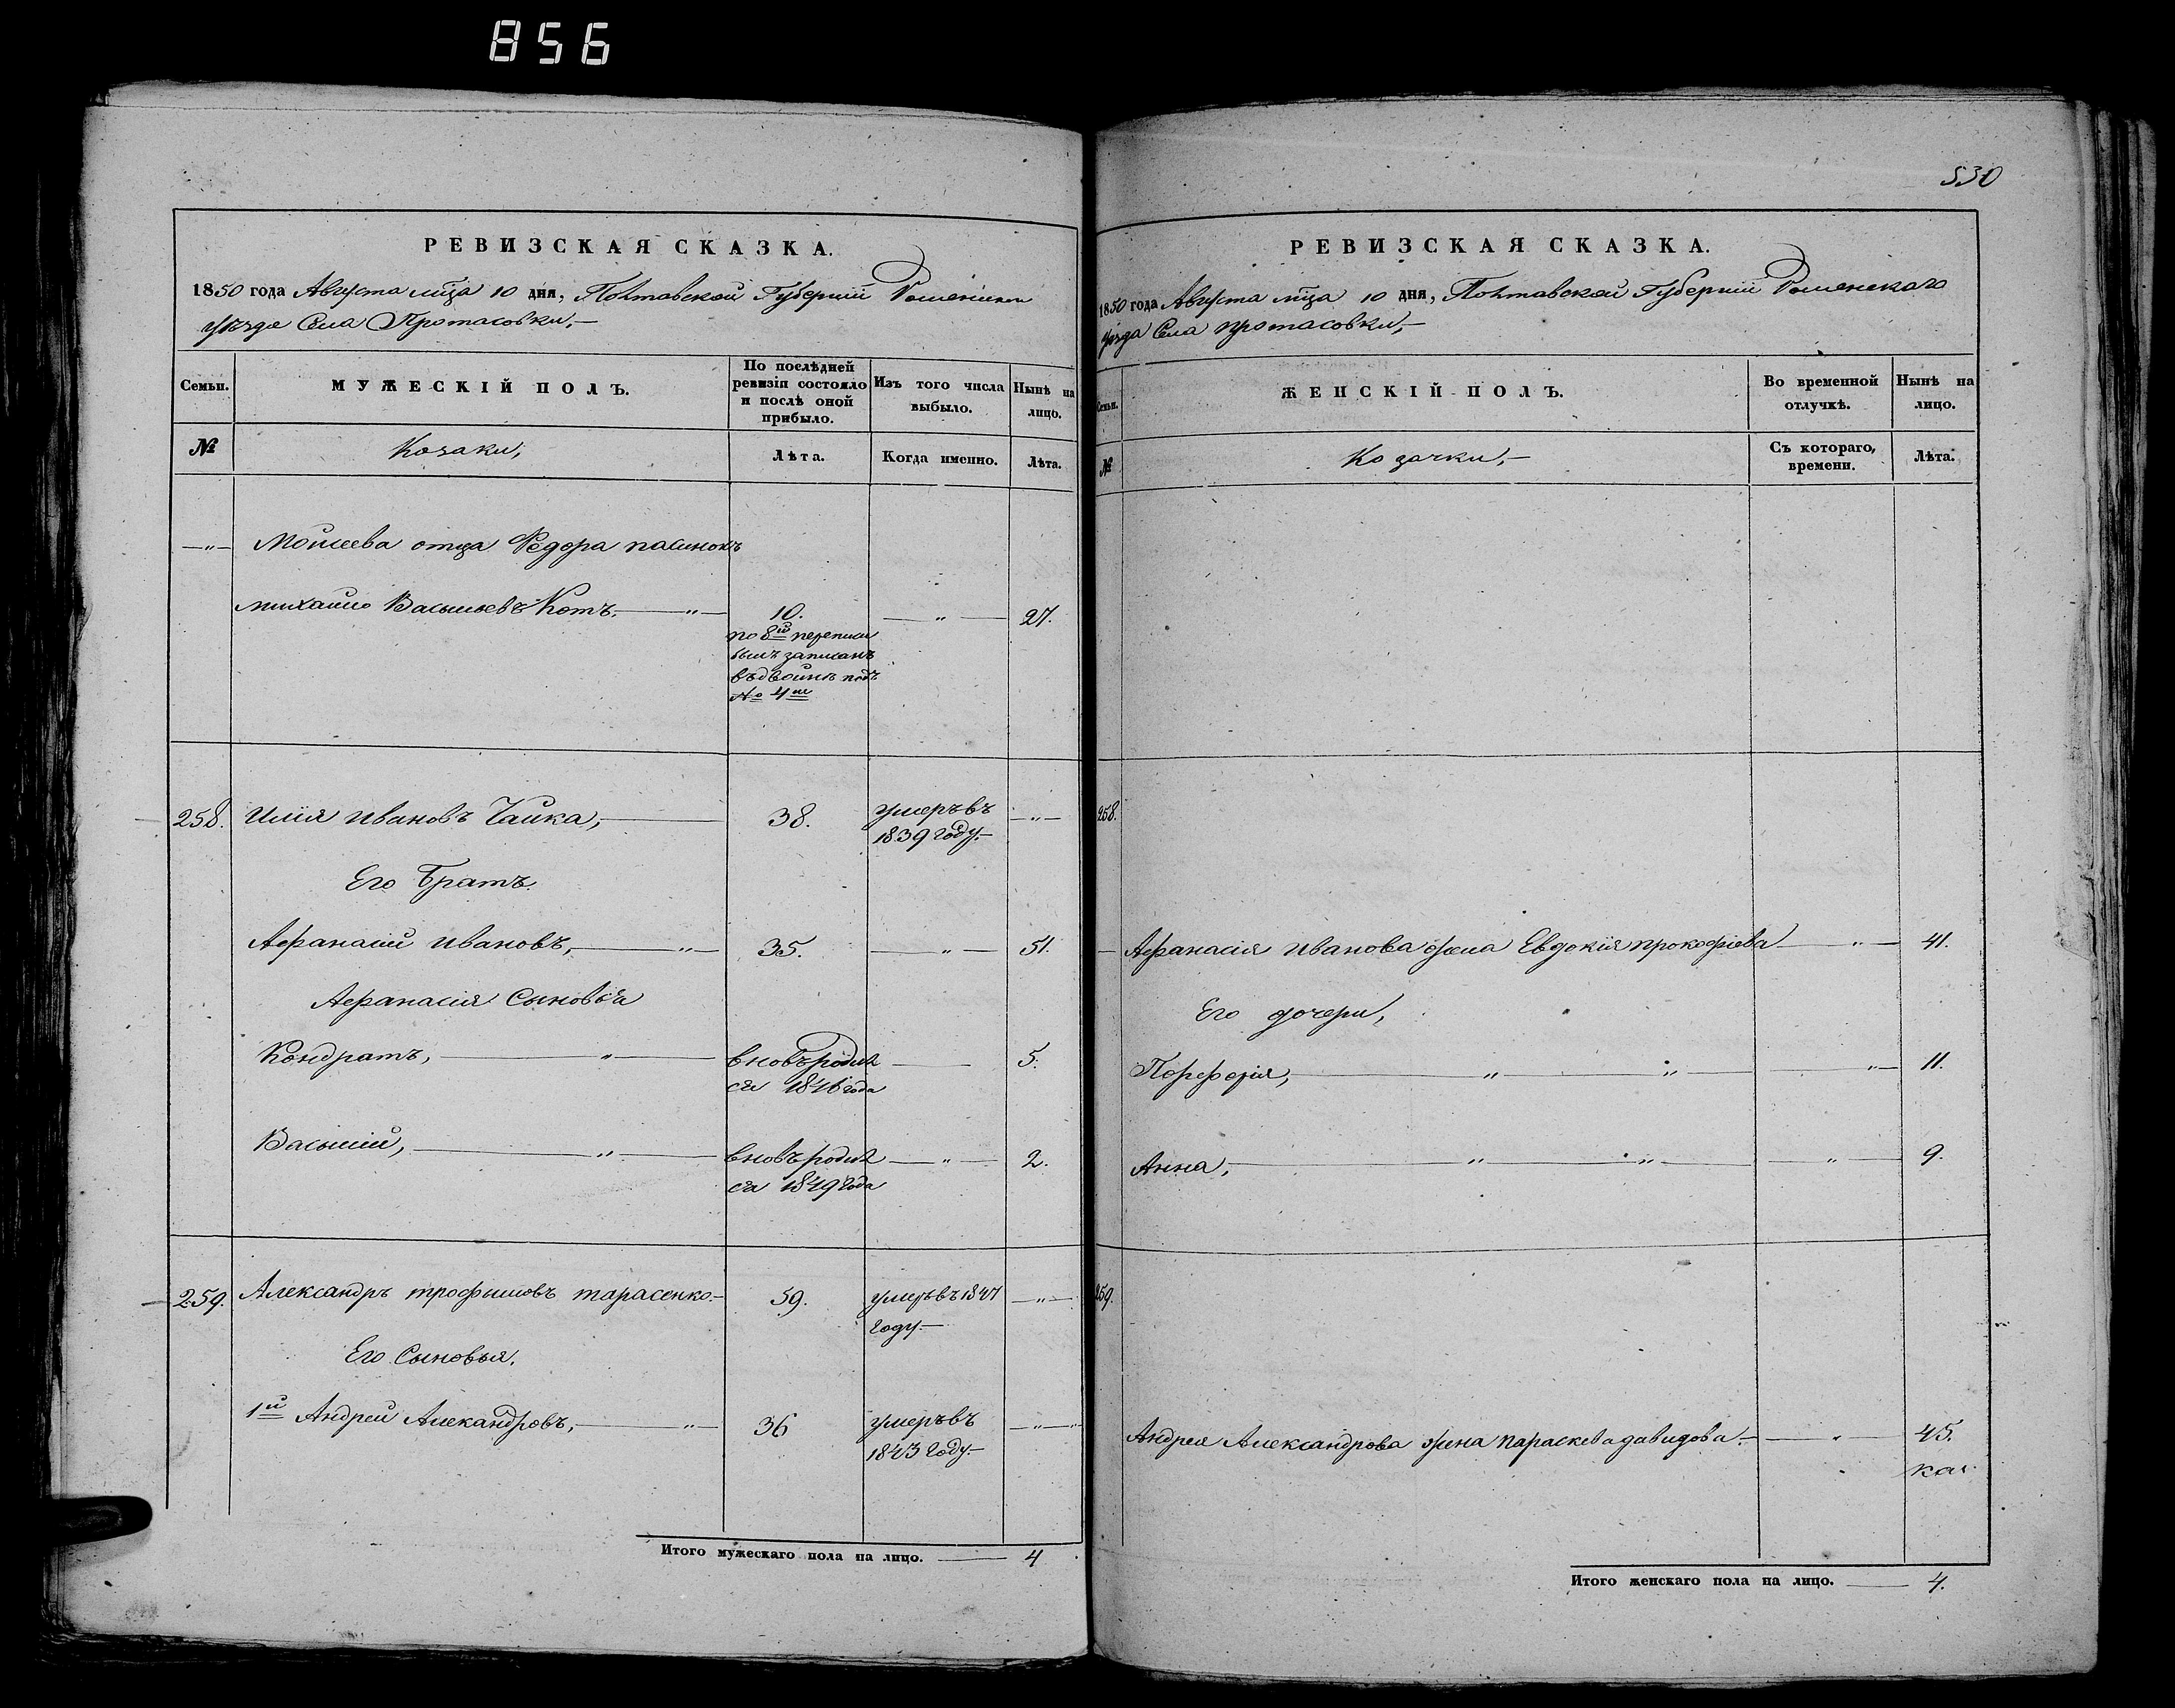 856
РЕВИЗСКАЯ СКАЗКА.
1850 года Августа мца 10 дня, Полтавской Губерніи Роменского
уѣзда Села Протасовки,
Семьи.
МУЖЕСКІЙ ПОЛЪ.
По послѣдней
ревизіи состояло
и послѣ оной
прибыло.
Изъ того числа
выбыло.
Нынѣ на
лицо.
№
Козаки,
Лѣта.
Когда именно.
Лѣта.
Моисеева отца Федора пасинокъ
михайло Васильевъ Котъ. 10. 27.
по 8й переписи
былъ записанъ
въ двойнѣ подъ
№ 4м
258. Илія Ивановъ Чайка, 38. умеръ въ
1839 году.
Его Братъ.
Афанасій Ивановъ, 35. 51.
Афанасія Сыновья
Кондратъ, вновь родил 5.
ся 1846 года
Василій, вновь родил 2.
ся 1849 года
259. Александръ трофимовъ тарасенко. 59. умеръ въ 1847
году.
Его Сыновья.
1й Андрей Александровъ, 36 умеръ въ
1843 году.
Итого мужескаго пола на лицо. 4
530
РЕВИЗСКАЯ СКАЗКА.
1850 года Августа мца 10 дня, Полтавской Губерніи Роменскаго
уѣзда Села протасовки,
Семьи.
ЖЕНСКІЙ ПОЛЪ.
Во временной
отлучкѣ.
Нынѣ на
лицо.
№
Козачки,
Съ котораго,
времени.
Лѣта.
258.
Афанасія Иванова жена Евдокія прокофіева 41.
Его дочери,
11.
Анна, 9.
259.
Андрея Александрова жена параскева давидова. 45.
Итого женскаго пола на лицо. 4.